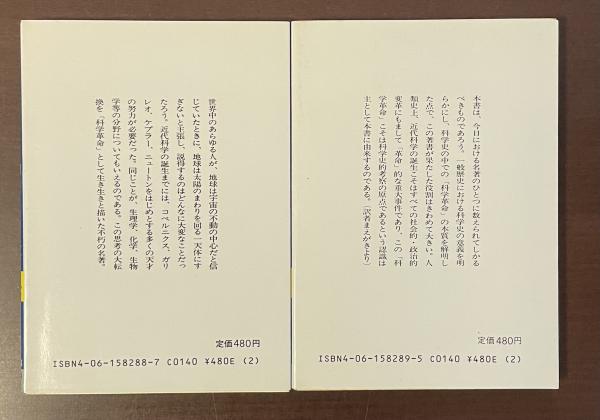 世界中のあらゆる人が、地球は宇宙の不動の中心だと信
じていたときに、地球は太陽のまわりを回る一天体にす
ぎないと主張し、説得するのはどんなに大変なことだっ
たろう。近代科学の誕生までには、コペルニクス、ガリ
レオ、ケプラー、ニュートンをはじめとする多くの天才
の努力が必要だった。同じことが、生理学、化学、生物
学等の分野についてもいえるのである。この思考の大転
換を「科学革命」として生き生きと描いた不朽の名著。
定価480円
ISBN4-06-158288-7 C0140 ¥480E (2)
本書は、今日における名著のひとつに数えられてしかる
べきものであろう。一般歴史における科学史の意義を明
らかにし、科学史の中での「科学革命」の本質を解明し
た点で、この著書が果たした役割はきわめて大きい。人
類史上、近代科学の誕生こそはすべての社会的・政治的
変革にもまして「革命」的な重大事件であり、この「科
学革命」こそは科学史的考察の原点であるという認識は
主として本書に由来するのである。（訳者まえがきより）
定価480円
ISBN4-06-158289-5 C0140 ¥480E (2)